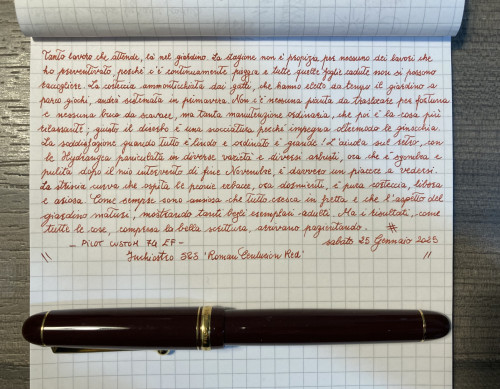 Tanto lavoro che attende, là nel giardino. La stagione non è propizia per nessuno dei lavori che
ho preventivato, perché c'è continuamente pioggia e tutte quelle foglie cadute non si possono
raccogliere. La corteccia ammonticchiata dai gatti, che hanno eletto da tempo il giardino a
parco giochi, andrà sistemata in primavera. Non c'è nessuna pianta da trasferire per fortuna
e nessuna buca da scavare, ma tanta manutenzione ordinaria, che poi è la cosa più
rilassante; giusto il diserbo è una scocciatura perché impegna oltremodo le ginocchia.
La soddisfazione quando tutto è lindo e ordinato è grande! L'aiuola sul retro, con
le Hydrangea paniculata in diverse varietà e diversi arbusti, ora che è sgombra e
pulita dopo il mio intervento di fine Novembre, è davvero un piacere a vedersi.
La striscia curva che ospita le peonie erbacee, ora dormienti, è pura corteccia, fibrosa
e ariosa. Come sempre sono ansiosa che tutto cresca in fretta e che l'aspetto del
giardino maturi, mostrando tanti begli esemplari adulti. Ma i risultati, come
tutte le cose, compresa la bella scrittura, arrivano pazientando. #
- PILOT CUSTOM 74 EF - sabato 25 Gennaio 2025
" Inchiostro 3&5 'Roman Centurion Red' "